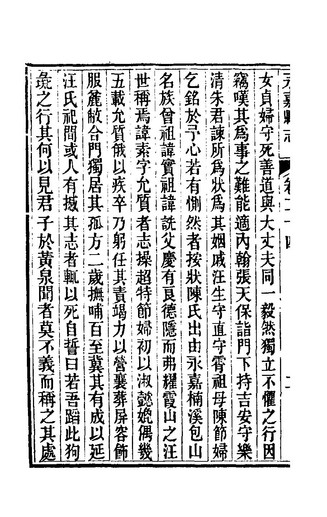 永嘉縣志 卷二十四
女貞婦守死善道與大丈夫同一毅然獨立不懼之行因
竊嘆其爲事之難能適內翰張天保詣門下持吉安守樂
清朱君諫所爲狀爲其姻戚汪生守直守霄祖母陳節婦
乞銘於予心若有惻然者按狀陳氏出由永嘉楠溪包山
名族曾祖諱實祖諱詵父慶有良德隱而弗耀霞山之汪
世稱焉諱素字允質者志操超特節婦初以淑懿媲偶幾
五載允質俄以疾卒乃躬任其責竭力以營襄葬屏容飾
服麄敝合門獨居其孤方二歲撫哺百至冀其有成以延
汪氏祀間或人有摵其志者輒以死自誓曰若吾蹈此狗
彘之行其何以見君子於黃泉聞者莫不義而稱之其處